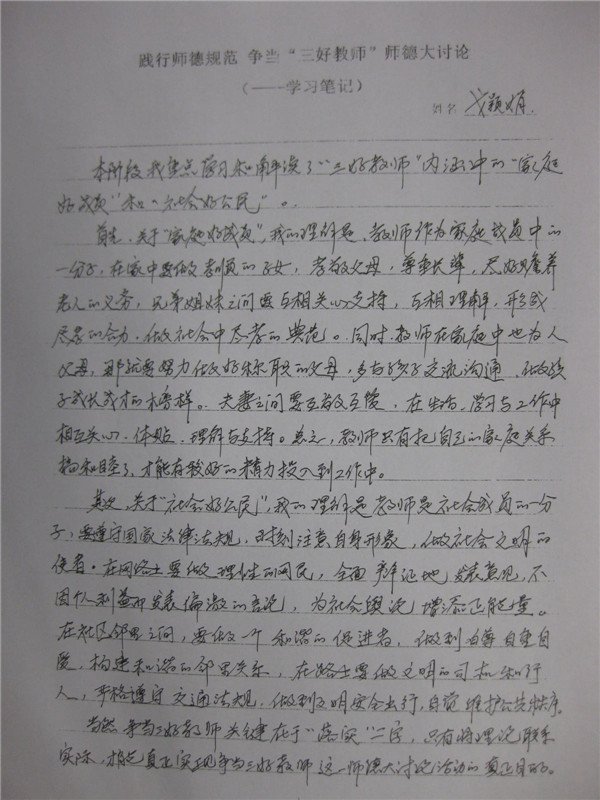 践行师德规范 争当“三好教师”师德大讨论
（——学习笔记）
颖娟
本阶段我重点学习和解读了“三好教师”内涵之中的“家庭
好成员”和“社会好公民”。
首先，关于“家庭好成员”，我的理解是，教师作为家庭成员中的
一分子，在家中要做孝顺的子女，孝敬父母，尊重长辈，尽好赡养
老人的义务，兄弟姐妹之间要互相关心支持，互相理解，形成
尽孝的合力，做社会中尽孝的典范。同时，教师在家庭中也为人
父母，那就要努力做好称职的父母，多与孩子交流沟通，做孩
子成长成才的榜样。夫妻之间要互敬互爱，在生活、学习与工作中
相互关心、体贴、理解与支持。总之，教师只有把自己的家庭关系
搞和睦了，才能有较好的精力投入到工作中。
其次，关于“社会好公民”，我的理解是教师是社会成员的一分
子，要遵守国家法律法规，时刻注意自身形象，做社会文明的
使者。在网络上要做理性的网民，全面辩证地发表意见，不
因个人利益而发表偏激的言论，为社会舆论增添正能量。
在社区邻里之间，要做一个和谐的促进者，做到自尊自重自
爱，构建和谐的邻里关系，在路上要做文明的司机和行
人，严格遵守交通法规，做到文明安全出行，自觉维护公共秩序。
当然，争当三好教师关键在于“落实”二字，只有将理论联系
实际，才能真正实现争当三好教师这一师德大讨论活动的真正目的。